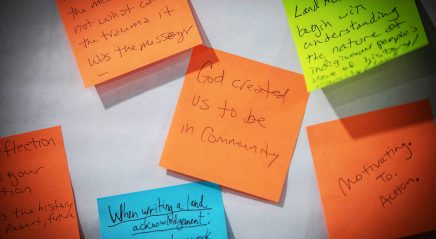 the me
not what co
the trauma it
was the messenger
Land
begin with
understanding
the nature of
indigenous people's
God created
us to be
in Community
eflection
your
tion
s the history
present, future
When writing a land
acknowledgement:
Motivating.
To.
Action.